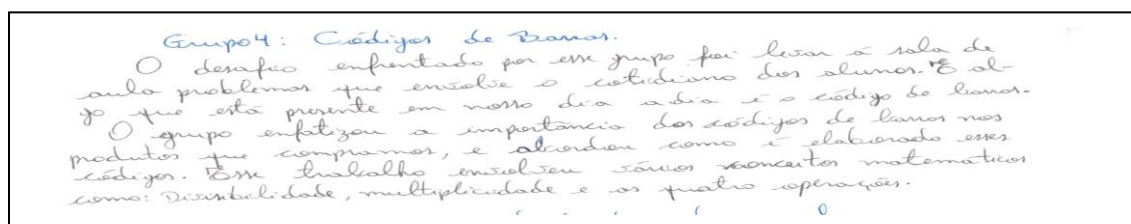 Grupo 4: Códigos de Barras.
O desafio enfrentado por esse grupo foi levar à sala de
aula problemas que envolve o cotidiano dos alunos. E al-
go que está presente em nosso dia a dia é o código de barras.
O grupo enfatizou a importância dos códigos de barras nos
produtos que compramos, e abordou como é elaborado esses
códigos. Esse trabalho envolveu vários conceitos matemáticos
como: Divisibilidade, multiplicidade e as quatro operações.